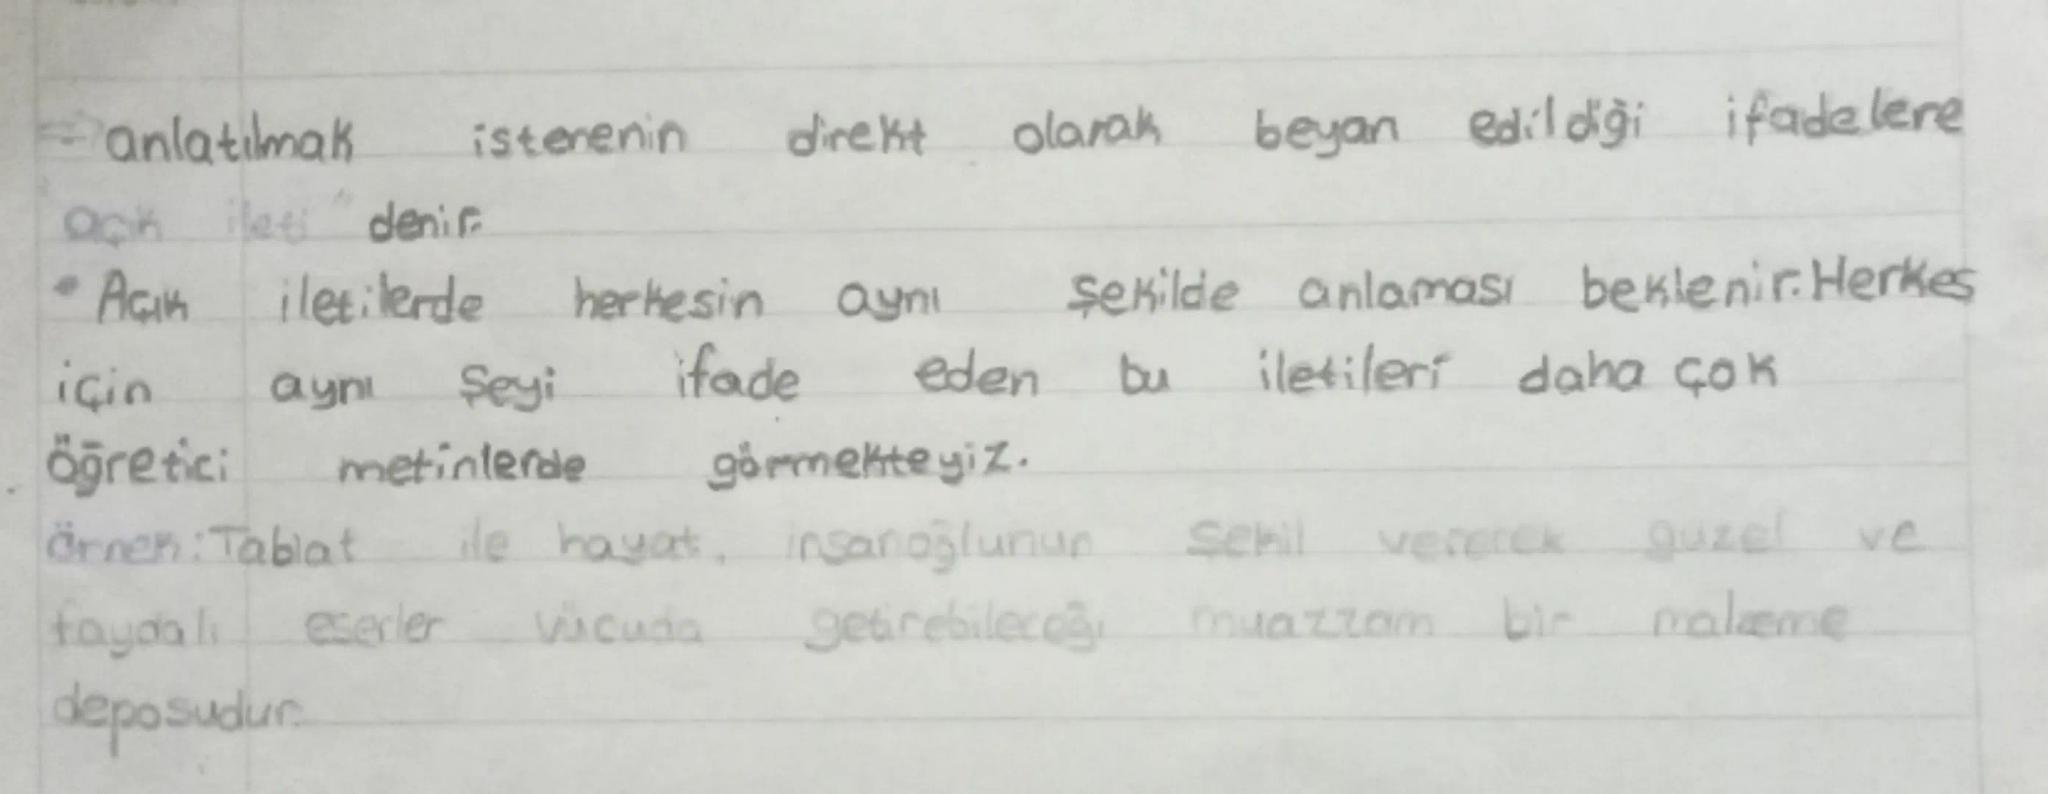 = anlatılmak istenenin direkt olarak beyan edildiği ifadelere
açık ileti" denir.
• Açık iletilerde herkesin aynı şekilde anlaması beklenir. Herkes
için aynı şeyi ifade eden bu iletileri daha çok
öğretici metinlerde görmekteyiz.
örnek: Tabiat ile hayat, insanoğlunun şekil vererek güzel ve
faydalı eserler vücuda getirebileceği muazzam bir malzeme
deposudur.